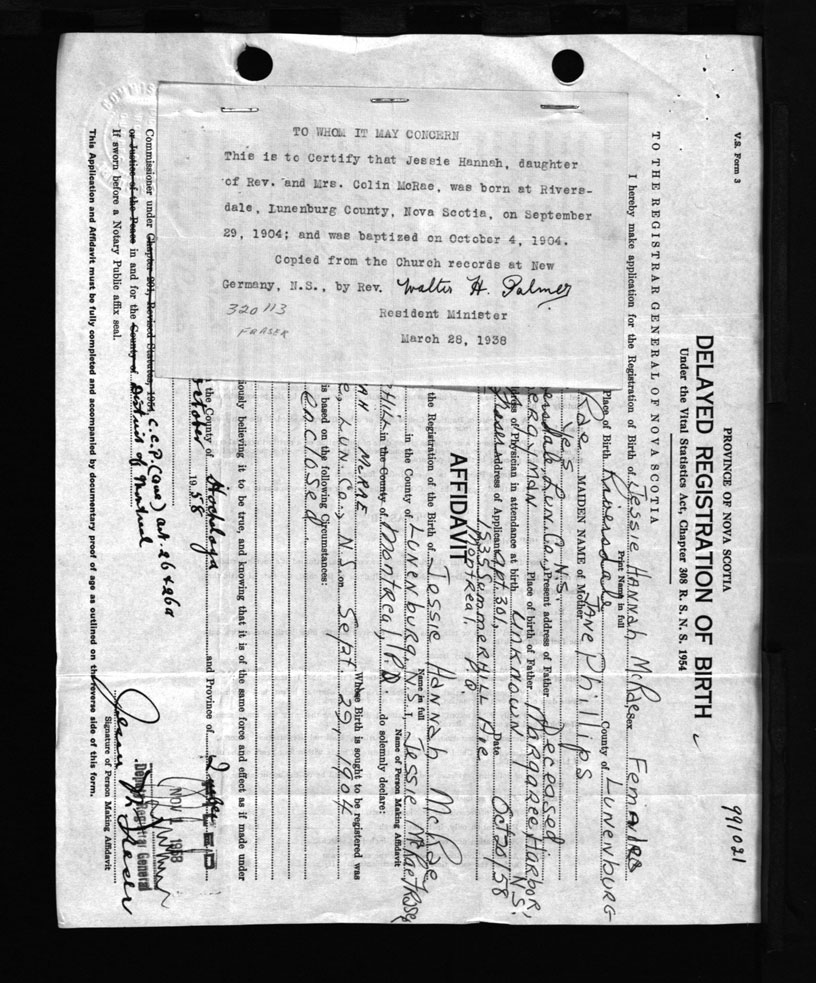 TO WHOM IT MAY CONCERN
This is to Certify that Jessie Hannah, daughter
of Rev. and Mrs. Colin McRae, was born at Rivers-
dale, Lunenburg County, Nova Scotia, on September
29, 1904; and was baptized on October 4, 1904.
Copied from the Church records at New
Germany, N.S., by Rev. Walter H. Palmer
320113
FRASER
Resident Minister
March 28, 1938
V.S. Form 3
991021
PROVINCE OF NOVA SCOTIA
DELAYED REGISTRATION OF BIRTH
Under the Vital Statistics Act, Chapter 308 R. S. N. S. 1954
TO THE REGISTRAR GENERAL OF NOVA SCOTIA
I hereby make application for the Registration of Birth of Jessie HANNAH McRae, sex Female
Print Name in full
Place of Birth Riversdale County of LUNENBURG
Rae MAIDEN NAME of Mother Jane Phillips
Yes
ersdale, Lun. Co., N.S. Present address of Father Deceased
ERGYMAN Place of birth of Father MARGAREE HARBOR, N.S.
Physician in attendance at birth UNKNOWN
Address of Applicant Apt. 301, Date Oct 20/58
1535 SummerHILL Ave
Montreal. P.Q.
AFFIDAVIT
the Registration of the Birth of Jessie HANNAH McRae
Name in full
in the County of LUNENBURG, N.S., Jessie McRae
Name of Person Making Affidavit
HILL in the County of Montreal, P.Q. do solemnly declare:
AH McRAE Whose Birth is sought to be registered was
e, Lun. Co., N.S. on Sept. 29, 1904
is based on the following Circumstances:
enclosed
iously believing it to be true, and knowing that it is of the same force and effect as if made under
the County of Hochelaga and Province of Quebec
October 1958
NOV 1958
Deputy Registrar General
Commissioner under Chapter 201, Revised Statutes, 1954, C.C.P. (Que) art. 26 & 26a
or Justice of the Peace in and for the County of District of Montreal
If sworn before a Notary Public affix seal.
Signature of Person Making Affidavit
This Application and Affidavit must be fully completed and accompanied by documentary proof of age as outlined on the reverse side of this form.